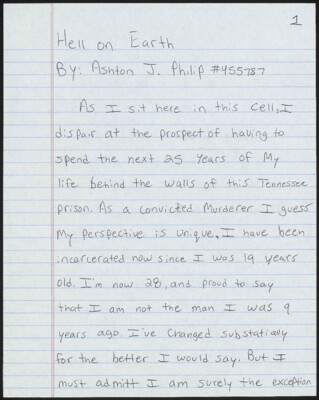 1
Hell on Earth
By: Ashton J. Philip #455787
As I sit here in this cell, I
dispair at the prospect of having to
spend the next 25 years of My
life behind the walls of this Tennessee
prison. As a convicted Murderer I guess
My perspective is unique. I have been
incarcerated now since I was 19 years
old. I'm now 28, and proud to say
that I am not the man I was 9
years ago. I've Changed substatially
for the better I would say. But I
must admitt I am surely the exception